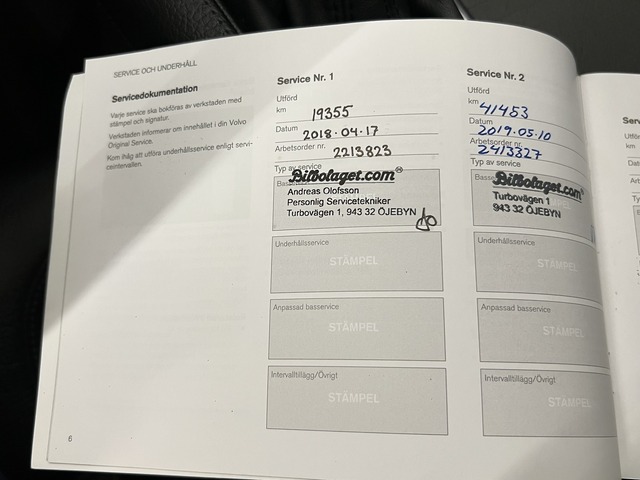 SERVICE OCH UNDERHÅLL
Servicedokumentation
Varje service ska bokföras av verkstaden med
stämpel och signatur.
Verkstaden informerar om innehållet i din Volvo
Original Service.
Kom ihåg att utföra underhållsservice enligt servi-
ceintervallen.
6
Service Nr. 1
Utförd
km 19355
Datum 2018-04-17
Arbetsorder nr. 2213823
Typ av service
Bilbolaget.com
Andreas Olofsson
Personlig Servicetekniker
Turbovägen 1, 943 32 ÖJEBYN
Underhållsservice
STÄMPEL
Anpassad basservice
STÄMPEL
Intervalltillägg/Övrigt
STÄMPEL
Service Nr. 2
Utförd
km 41453
Datum 2019.05.10
Arbetsorder nr. 2413327
Typ av service
Bilbolaget.com
Turbovägen 1
943 32 ÖJEBYN
Underhållsservice
STÄMPEL
Anpassad basservice
STÄMPEL
Intervalltillägg/Övrigt
STÄMPEL